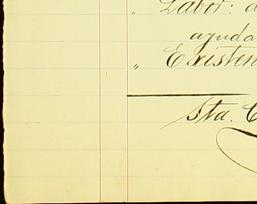 " Labor: a
ayuda
" Existen
Sta. C